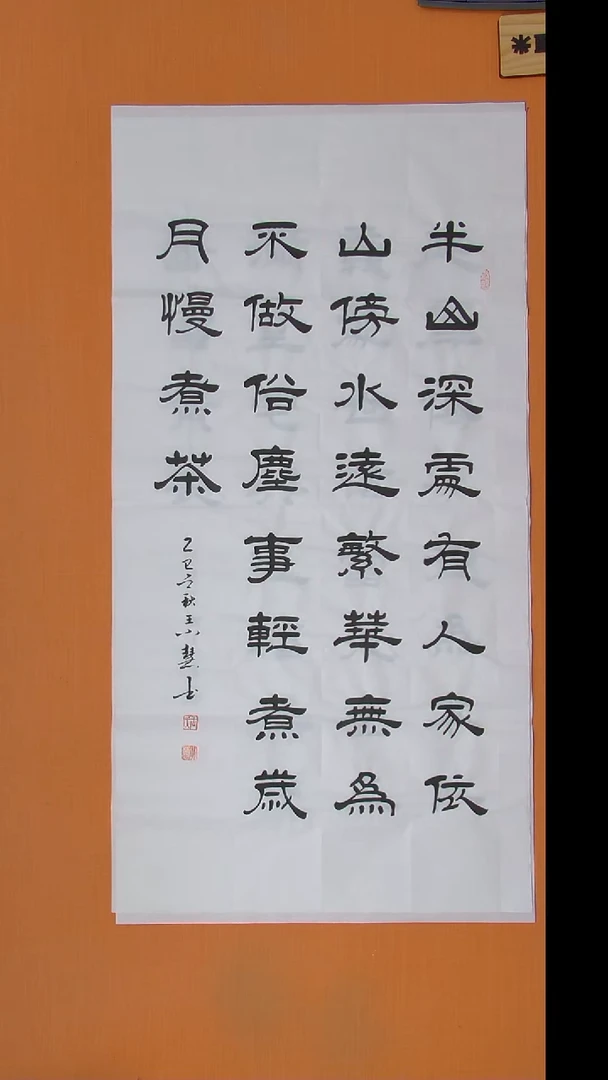 半山深處有人家依
山傍水遠繁華無爲
不做俗塵事輕煮歲
月慢煮茶
乙巳立秋王小慧书